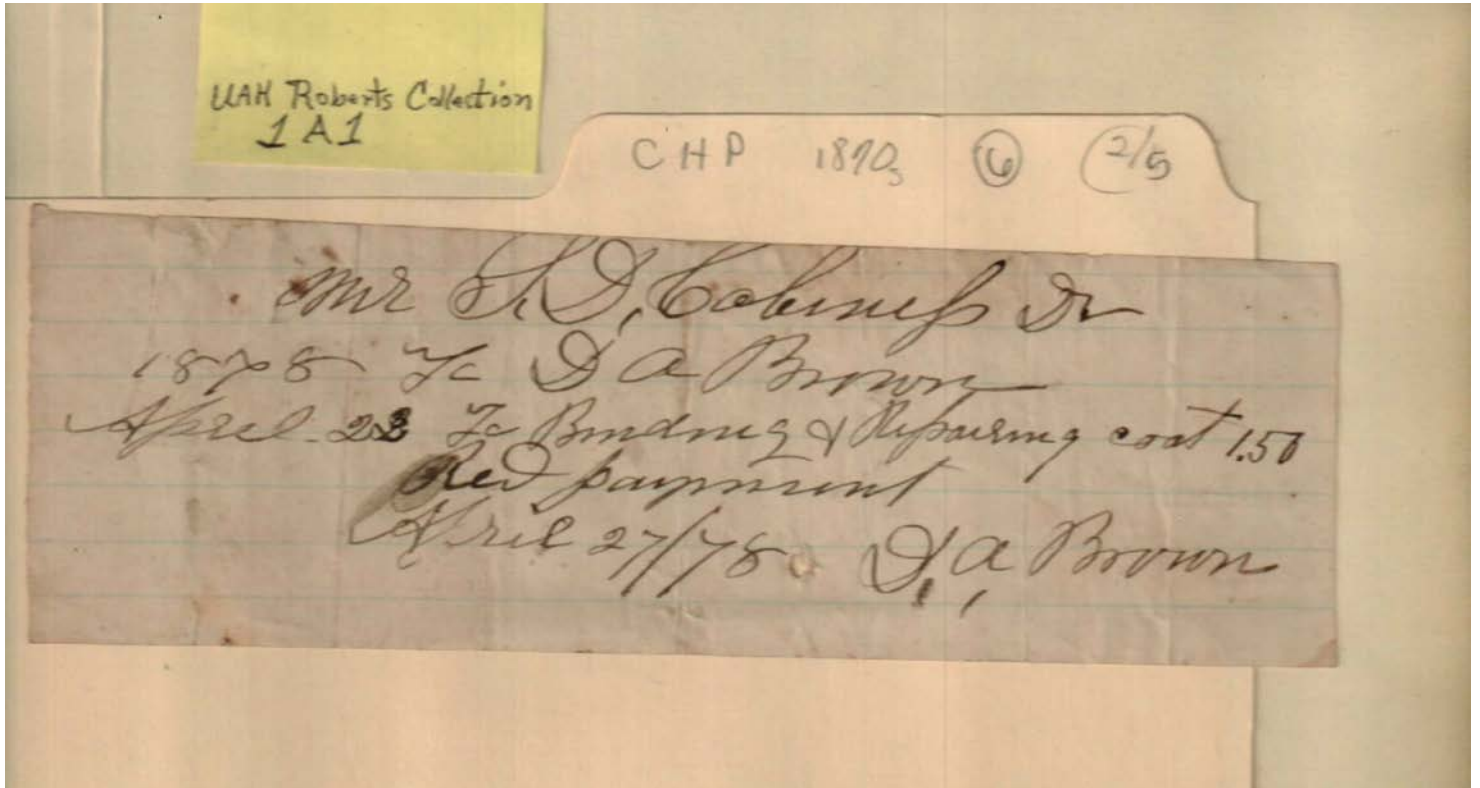 UAH Roberts Collection
1A1
CHP 1870s 6 2/5
Mr S. D. Cabiness Dr
1878 To D A Brown
April 23 To Binding & Repairing coat 1.50
Recd payment
April 27/78 D, A, Brown